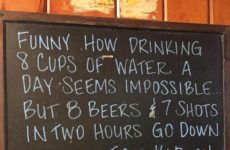 FUNNY HOW DRINKING
8 CUPS OF WATER A
DAY SEEMS IMPOSSIBLE...
BUT 8 BEERS & 7 SHOTS
IN TWO HOURS GO DOWN